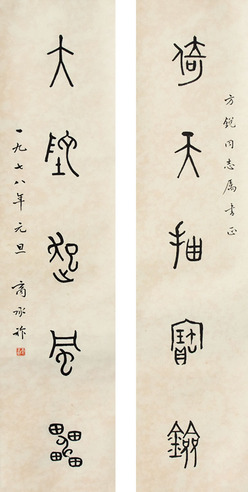 方銳同志属書正
倚天抽寶劍
大地起風雷
一九七八年元旦 商承祚